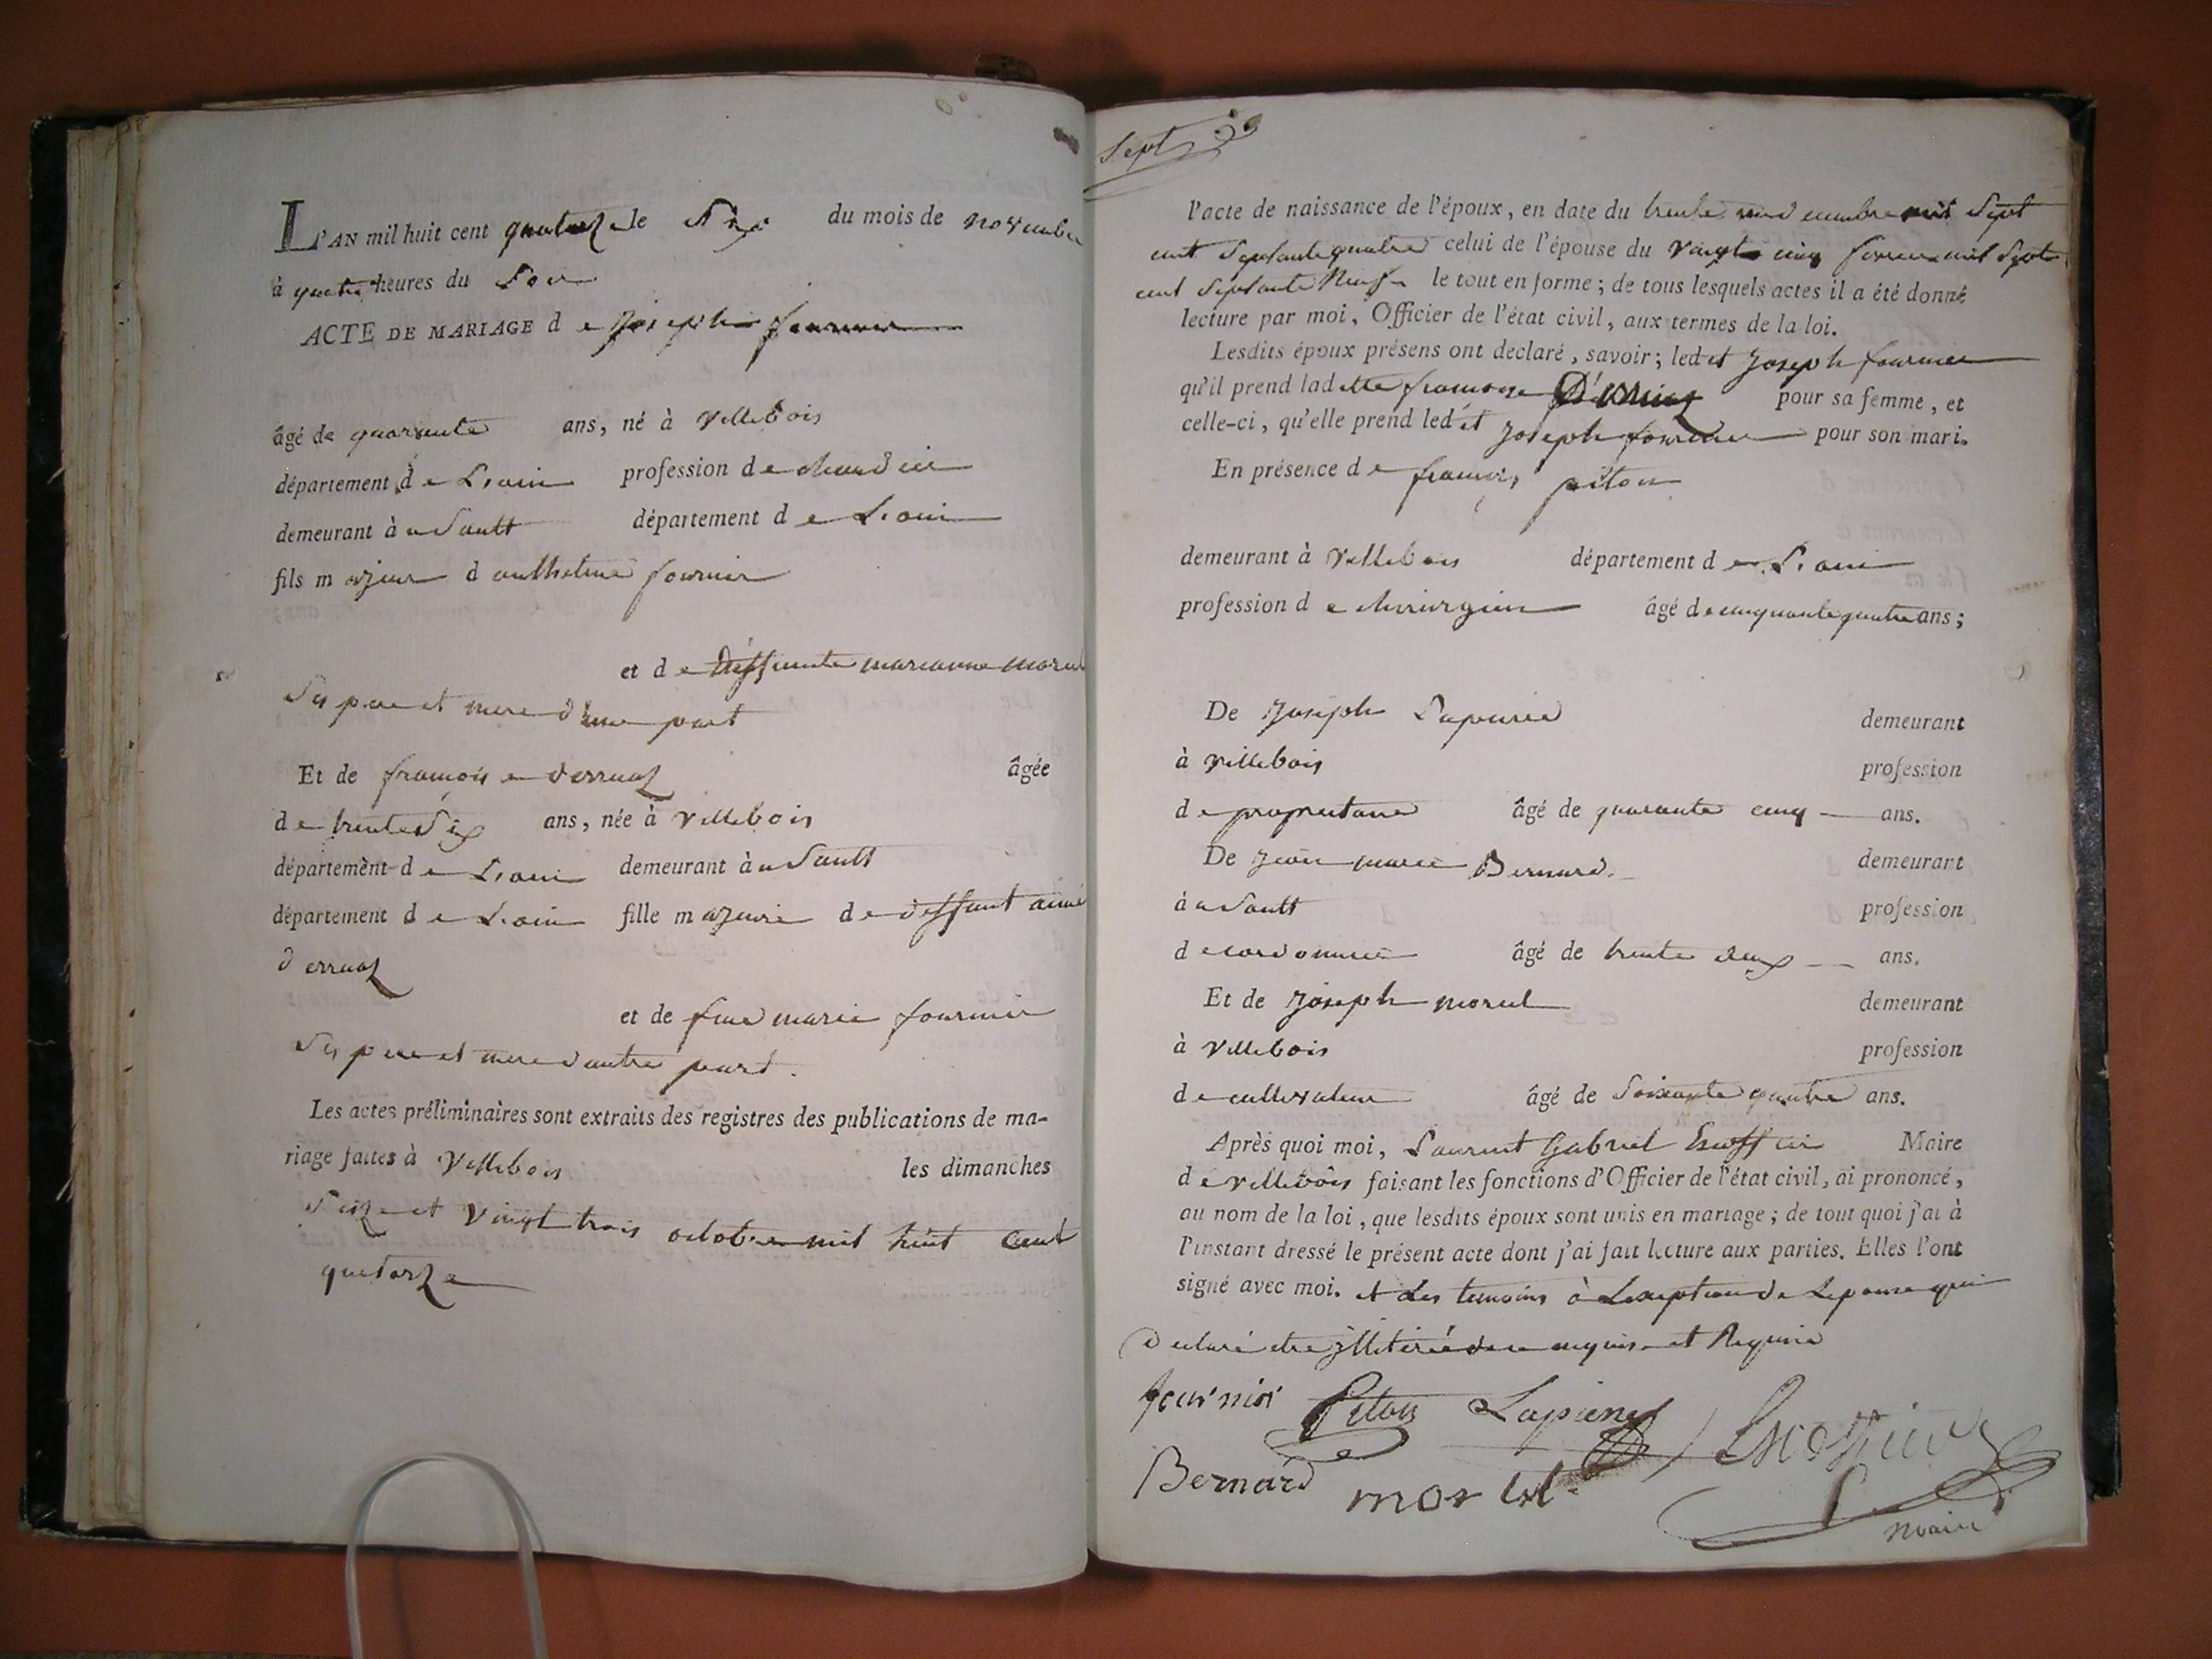 L'AN mil huit cent quatorze le Six du mois de novembre
à quatre heures du Soir
ACTE DE MARIAGE d e Joseph fournier
âgé de quarante ans, né à Villebois
département d e L'ain profession d e
demeurant à u Sault département d e L'ain
fils m ajeur d anthelme fournier
et d e deffunte marianne morel
Ses pere et mere d'une part
Et de françoise derruaz âgée
d e trente Six ans, née à Villebois
département d e L'ain demeurant à u Sault
département d e L'ain fille m ajeure de deffunt aimé
derruaz
et de feue marie fournier
Ses pere et mere d'autre part.
Les actes préliminaires sont extraits des registres des publications de ma-
riage faites à Villebois les dimanches
Seize et Vingt trois octobre mil huit Cent
quatorze
Sept
l'acte de naissance de l'époux, en date du trente mil Sept
cent Septante quatre celui de l'épouse du Vingt cinq fevrier mil Sept
cent Septante Neuf le tout en forme ; de tous lesquels actes il a été donné
lecture par moi, Officier de l'état civil, aux termes de la loi.
Lesdits époux présens ont déclaré, savoir ; led it Joseph fournier
qu'il prend lad itte françoise Derruaz pour sa femme, et
celle-ci, qu'elle prend led it Joseph fournier pour son mari.
En présence d e françois piton
demeurant à Villebois département d e L'ain
profession d e chirurgien âgé de cinquante quatre ans ;
De Joseph Lapierre demeurant
à Villebois profession
d e propriétaire âgé de quarante cinq ans.
De Jean marie Bernard. demeurant
à u Sault profession
d e cordonnier âgé de trente deux ans.
Et de Joseph morel demeurant
à Villebois profession
d e cultivateur âgé de Soixante quatre ans.
Après quoi moi, Laurent Gabriel Escoffier Maire
d e Villebois faisant les fonctions d'Officier de l'état civil, ai prononcé,
au nom de la loi, que lesdits époux sont unis en mariage ; de tout quoi j'ai à
l'instant dressé le présent acte dont j'ai fait lecture aux parties. Elles l'ont
signé avec moi. et Les temoins à L'exception de L'epouse qui
a declaré etre illitérée de ce enquise et Requise
fournier Piton Lapierre Escoffier
Bernard morel
maire